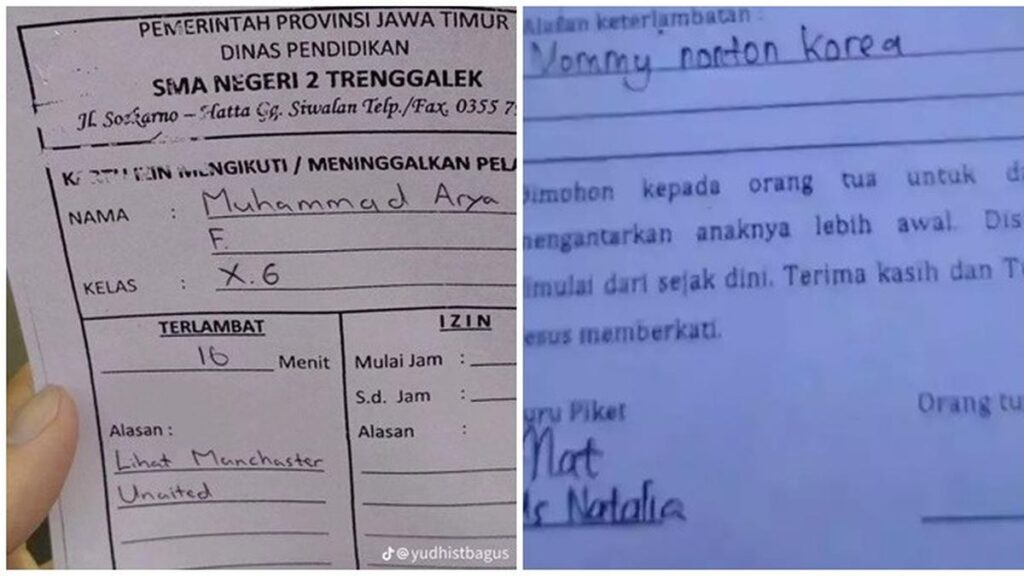 PEMERINTAH PROVINSI JAWA TIMUR
DINAS PENDIDIKAN
SMA NEGERI 2 TRENGGALEK
Jl. Soekarno – Hatta Gg. Siwalan Telp./Fax. 0355 7
KARTU IZIN MENGIKUTI / MENINGGALKAN PELA
NAMA : Muhammad Arya
F.
KELAS : X.6
TERLAMBAT
16 Menit
Alasan :
Lihat Manchaster
Unaited
IZIN
Mulai Jam :
S.d. Jam :
Alasan :
@yudhistbagus
Alasan keterlambatan :
Mommy nonton Korea
Dimohon kepada orang tua untuk
mengantarkan anaknya lebih awal. Dis
dimulai dari sejak dini. Terima kasih dan T
esus memberkati.
uru Piket
Orang tu
Nat
Ms Natalia